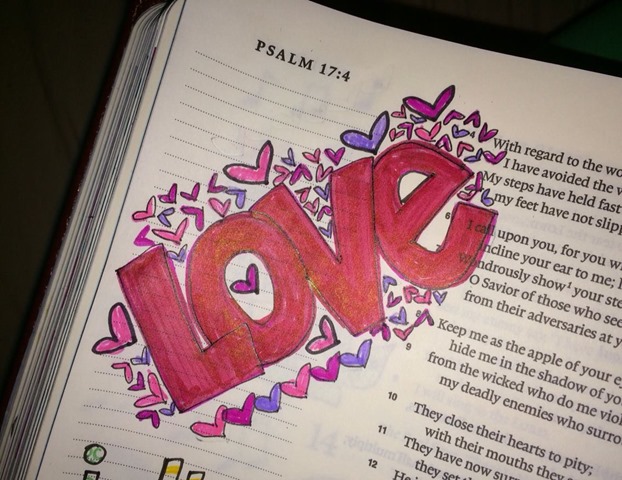 PSALM 17:4
LOVe
With regard to the
I have avoided the
My steps have held fast
my feet have not
6 I call upon you, for you
incline your ear to me;
7 Wondrously show your
O Savior of those who
from their adversaries at
8 Keep me as the apple of your
hide me in the shadow of
9 from the wicked who do me
my deadly enemies who
10 They close their hearts to pity;
with their mouths they
11 They have now
they set
12 He